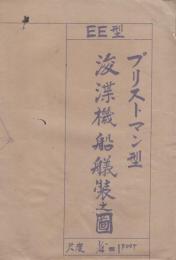 EE型
プリストマン型
浚渫機船艤装之圖
尺度 1/4"=1FOOT